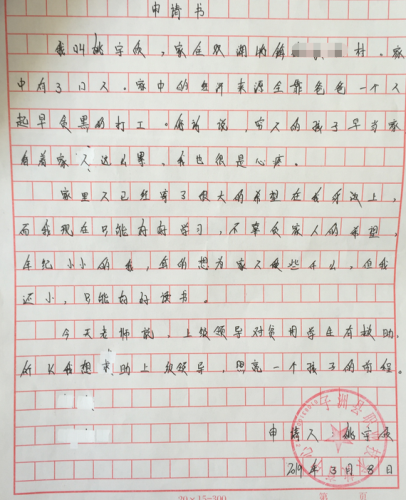 申请书
我叫姚宇欣，家在双湖峪镇 村。家
中有3口人。家中的经济来源全靠爸爸一个人
起早贪黑的打工。俗话说，穷人的孩子早当家
看着家人这么累，我也很是心疼。
家里人已经寄了很大的希望在我身上，
而我现在只能好好学习，不辜负家人的希望，
年纪小小的我，真的想为家人做些什么，但我
还小，只能好好读书。
今天老师说，上级领导对贫困学生有救助，
所以我想求助上级领导，照亮一个孩子的前程。
申请人：姚宇欣
2019年3月8日
20×15=300
第 页